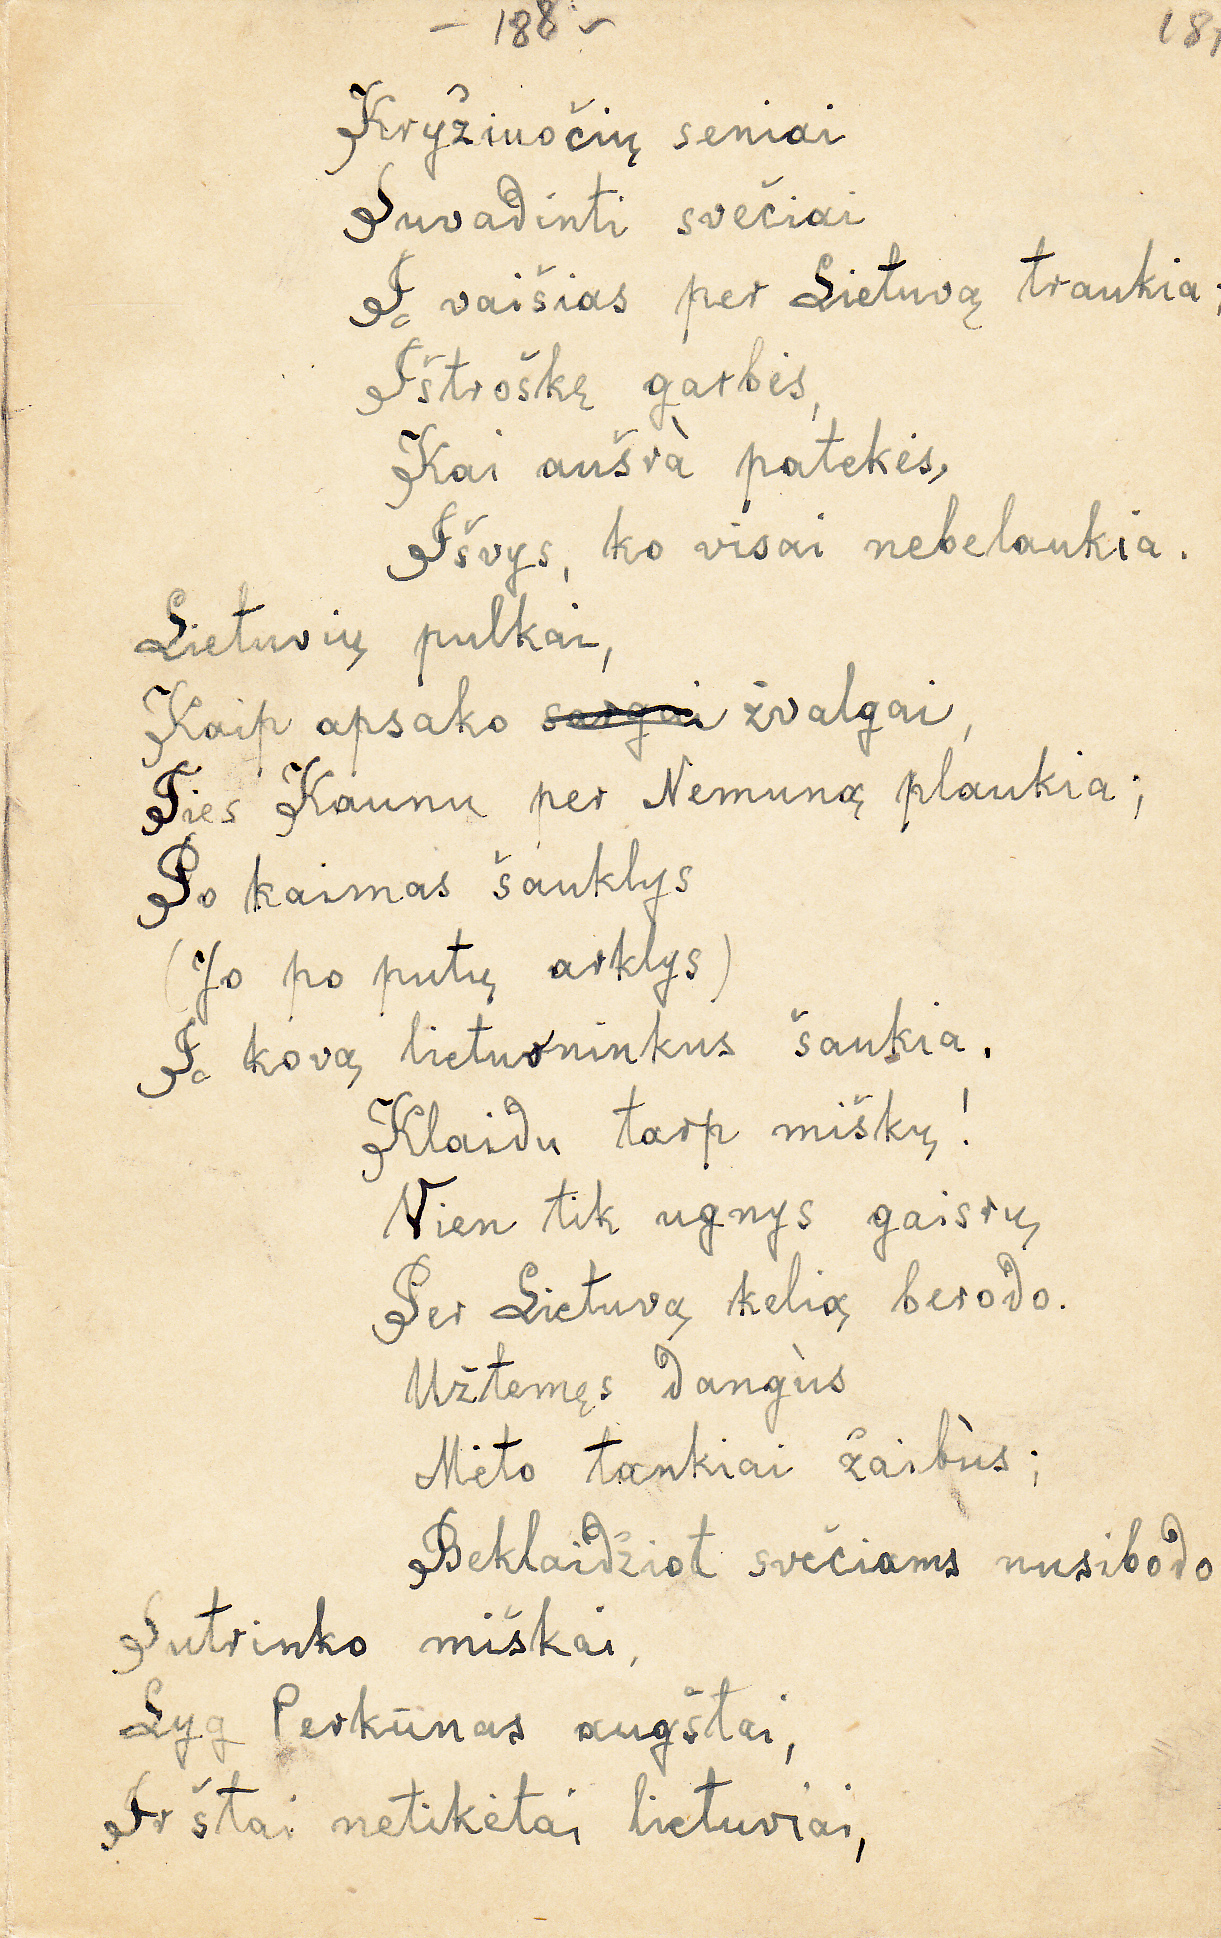 – 188 –
Kryžiuočių seniai
Suvadinti svečiai
Į vaišias per Lietuvą traukia;
Ištroškę garbės,
Kai aušrà patekės,
Išvys, ko visai nebelaukia.
Lietuvių pulkai,
Kaip apsako sargai žvalgai,
Ties Kaunu per Nemuną plaukia;
Po kaimas šauklys
(Jo po putų arklys)
Į kovą lietuvninkus šaukia.
Klaidu tarp miškų!
Vien tik ugnys gaisrų
Per Lietuvą kelią berodo.
Užtemęs dangùs
Mėto tankiai žaibùs;
Beklaidžiot svečiams nusibodo
Sutrinko miškai,
Lyg Perkūnas augštai,
Ir štai netikėtai lietuviai,